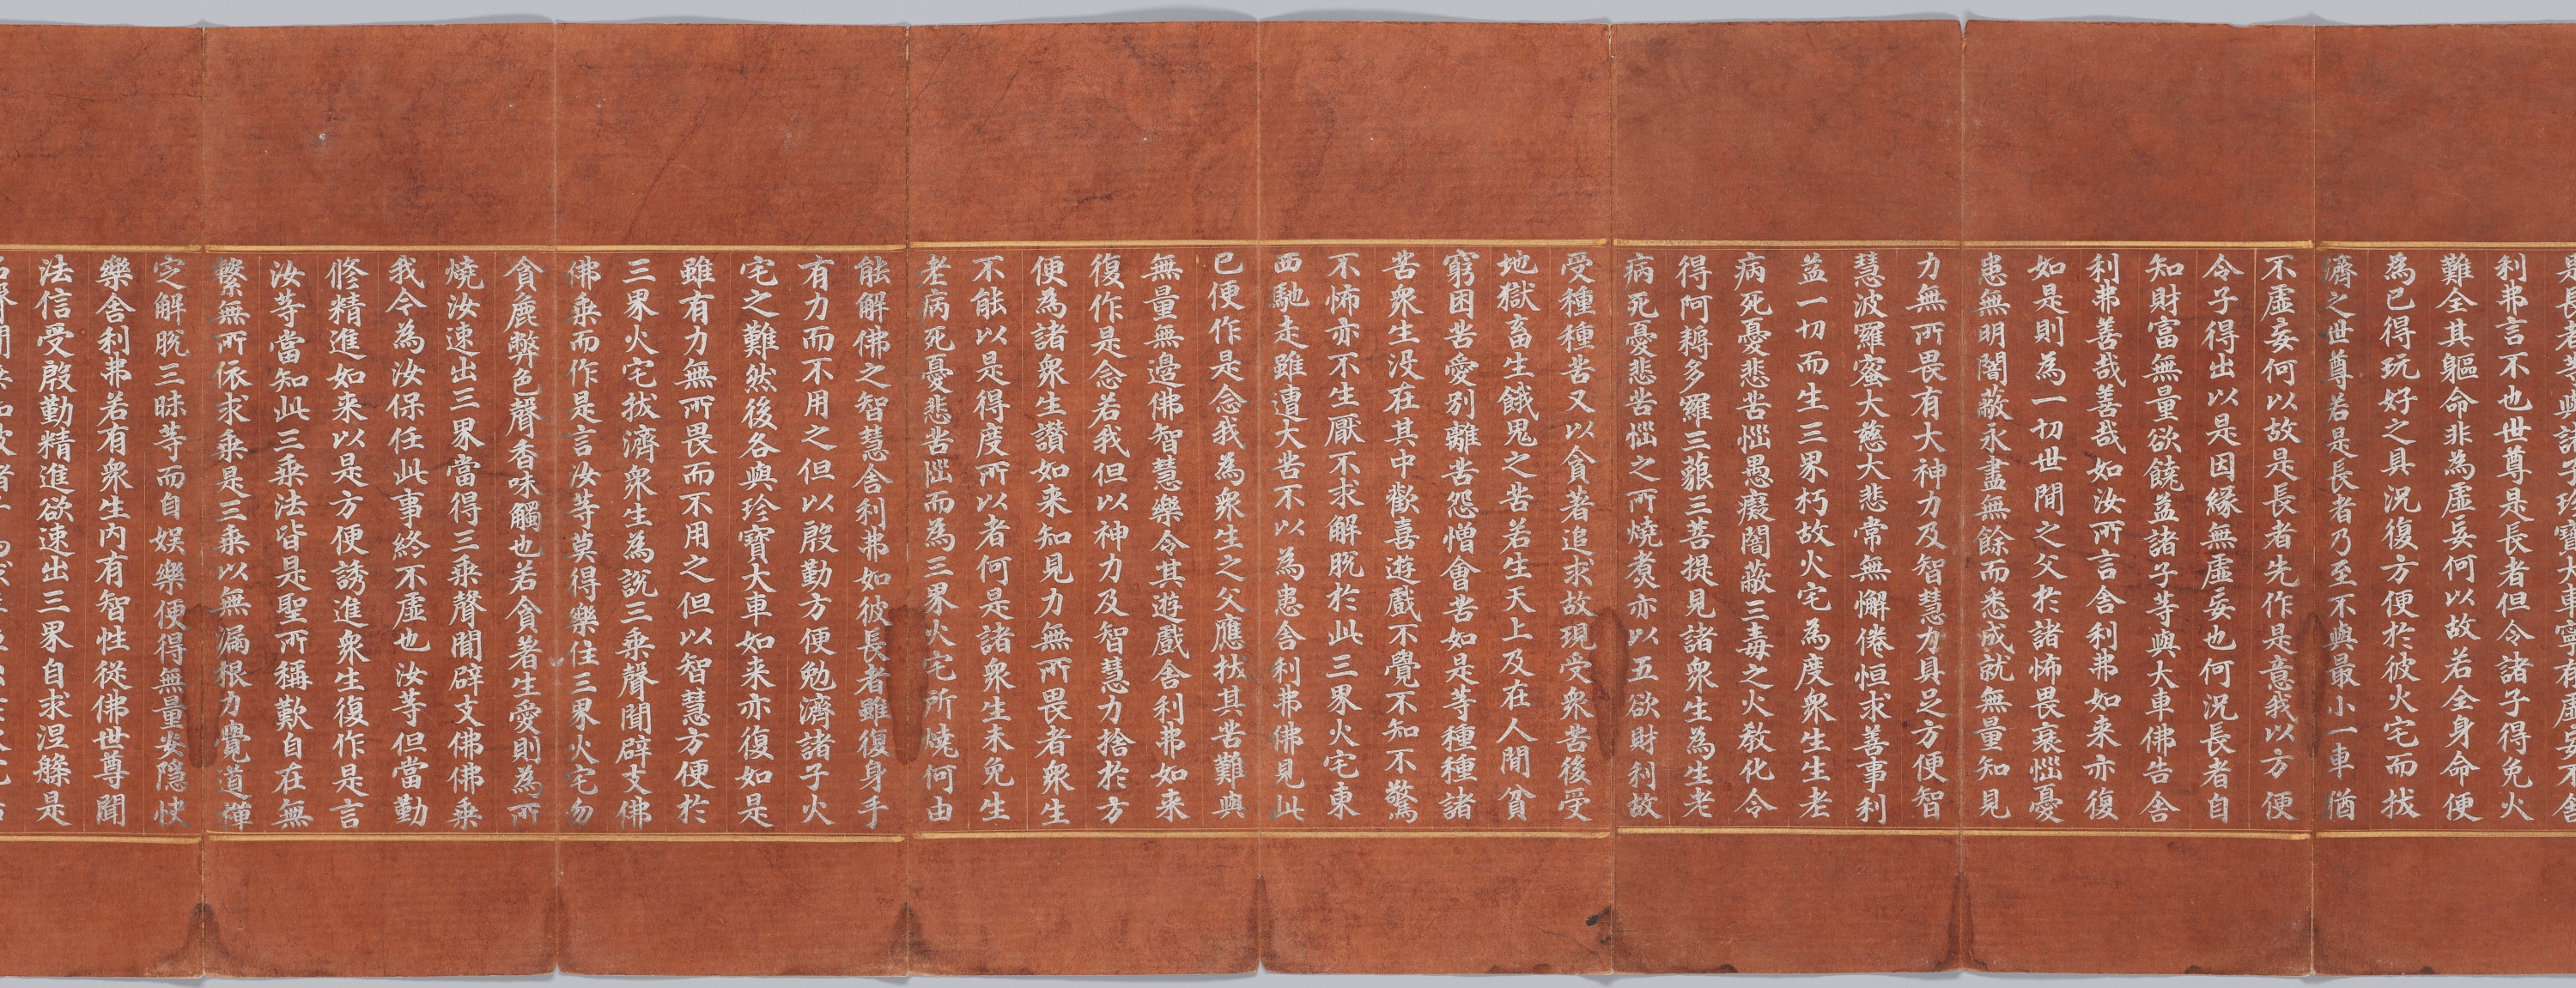 利弗言不也世尊是長者但令諸子得免火
難全其軀命非為虛妄何以故若全身命便
為已得玩好之具況復方便於彼火宅而拔
濟之世尊若是長者乃至不與最小一車猶
不虛妄何以故是長者先作是意我以方便
令子得出以是因緣無虛妄也何況長者自
知財富無量欲饒益諸子等與大車佛告舍
利弗善哉善哉如汝所言舍利弗如来亦復
如是則為一切世間之父於諸怖畏衰惱憂
患無明闇蔽永盡無餘而悉成就無量知見
力無所畏有大神力及智慧力具足方便智
慧波羅蜜大慈大悲常無懈倦恒求善事利
益一切而生三界朽故火宅為度衆生生老
病死憂悲苦惱愚癡闇蔽三毒之火教化令
得阿耨多羅三藐三菩提見諸衆生為生老
病死憂悲苦惱之所燒煑亦以五欲財利故
受種種苦又以貪著追求故現受衆苦後受
地獄畜生餓鬼之苦若生天上及在人間貧
窮困苦愛別離苦怨憎會苦如是等種種諸
苦衆生没在其中歡喜遊戲不覺不知不驚
不怖亦不生厭不求解脫於此三界火宅東
西馳走雖遭大苦不以為患舍利弗佛見此
已便作是念我為衆生之父應拔其苦難與
無量無邊佛智慧樂令其遊戲舍利弗如来
復作是念若我但以神力及智慧力捨於方
便為諸衆生讚如来知見力無所畏者衆生
不能以是得度所以者何是諸衆生未免生
老病死憂悲苦惱而為三界火宅所燒何由
能解佛之智慧舍利弗如彼長者雖復身手
有力而不用之但以殷勤方便勉濟諸子火
宅之難然後各與珍寶大車如来亦復如是
雖有力無所畏而不用之但以智慧方便於
三界火宅拔濟衆生為說三乘聲聞辟支佛
佛乘而作是言汝等莫得樂住三界火宅勿
貪麁弊色聲香味觸也若貪著生愛則為所
燒汝速出三界當得三乘聲聞辟支佛佛乘
我今為汝保任此事終不虛也汝等但當勤
修精進如来以是方便誘進衆生復作是言
汝等當知此三乘法皆是聖所稱歎自在無
繫無所依求乘是三乘以無漏根力覺道禪
定解脫三昧等而自娛樂便得無量安隱快
樂舍利弗若有衆生内有智性從佛世尊聞
法信受殷勤精進欲速出三界自求涅槃是